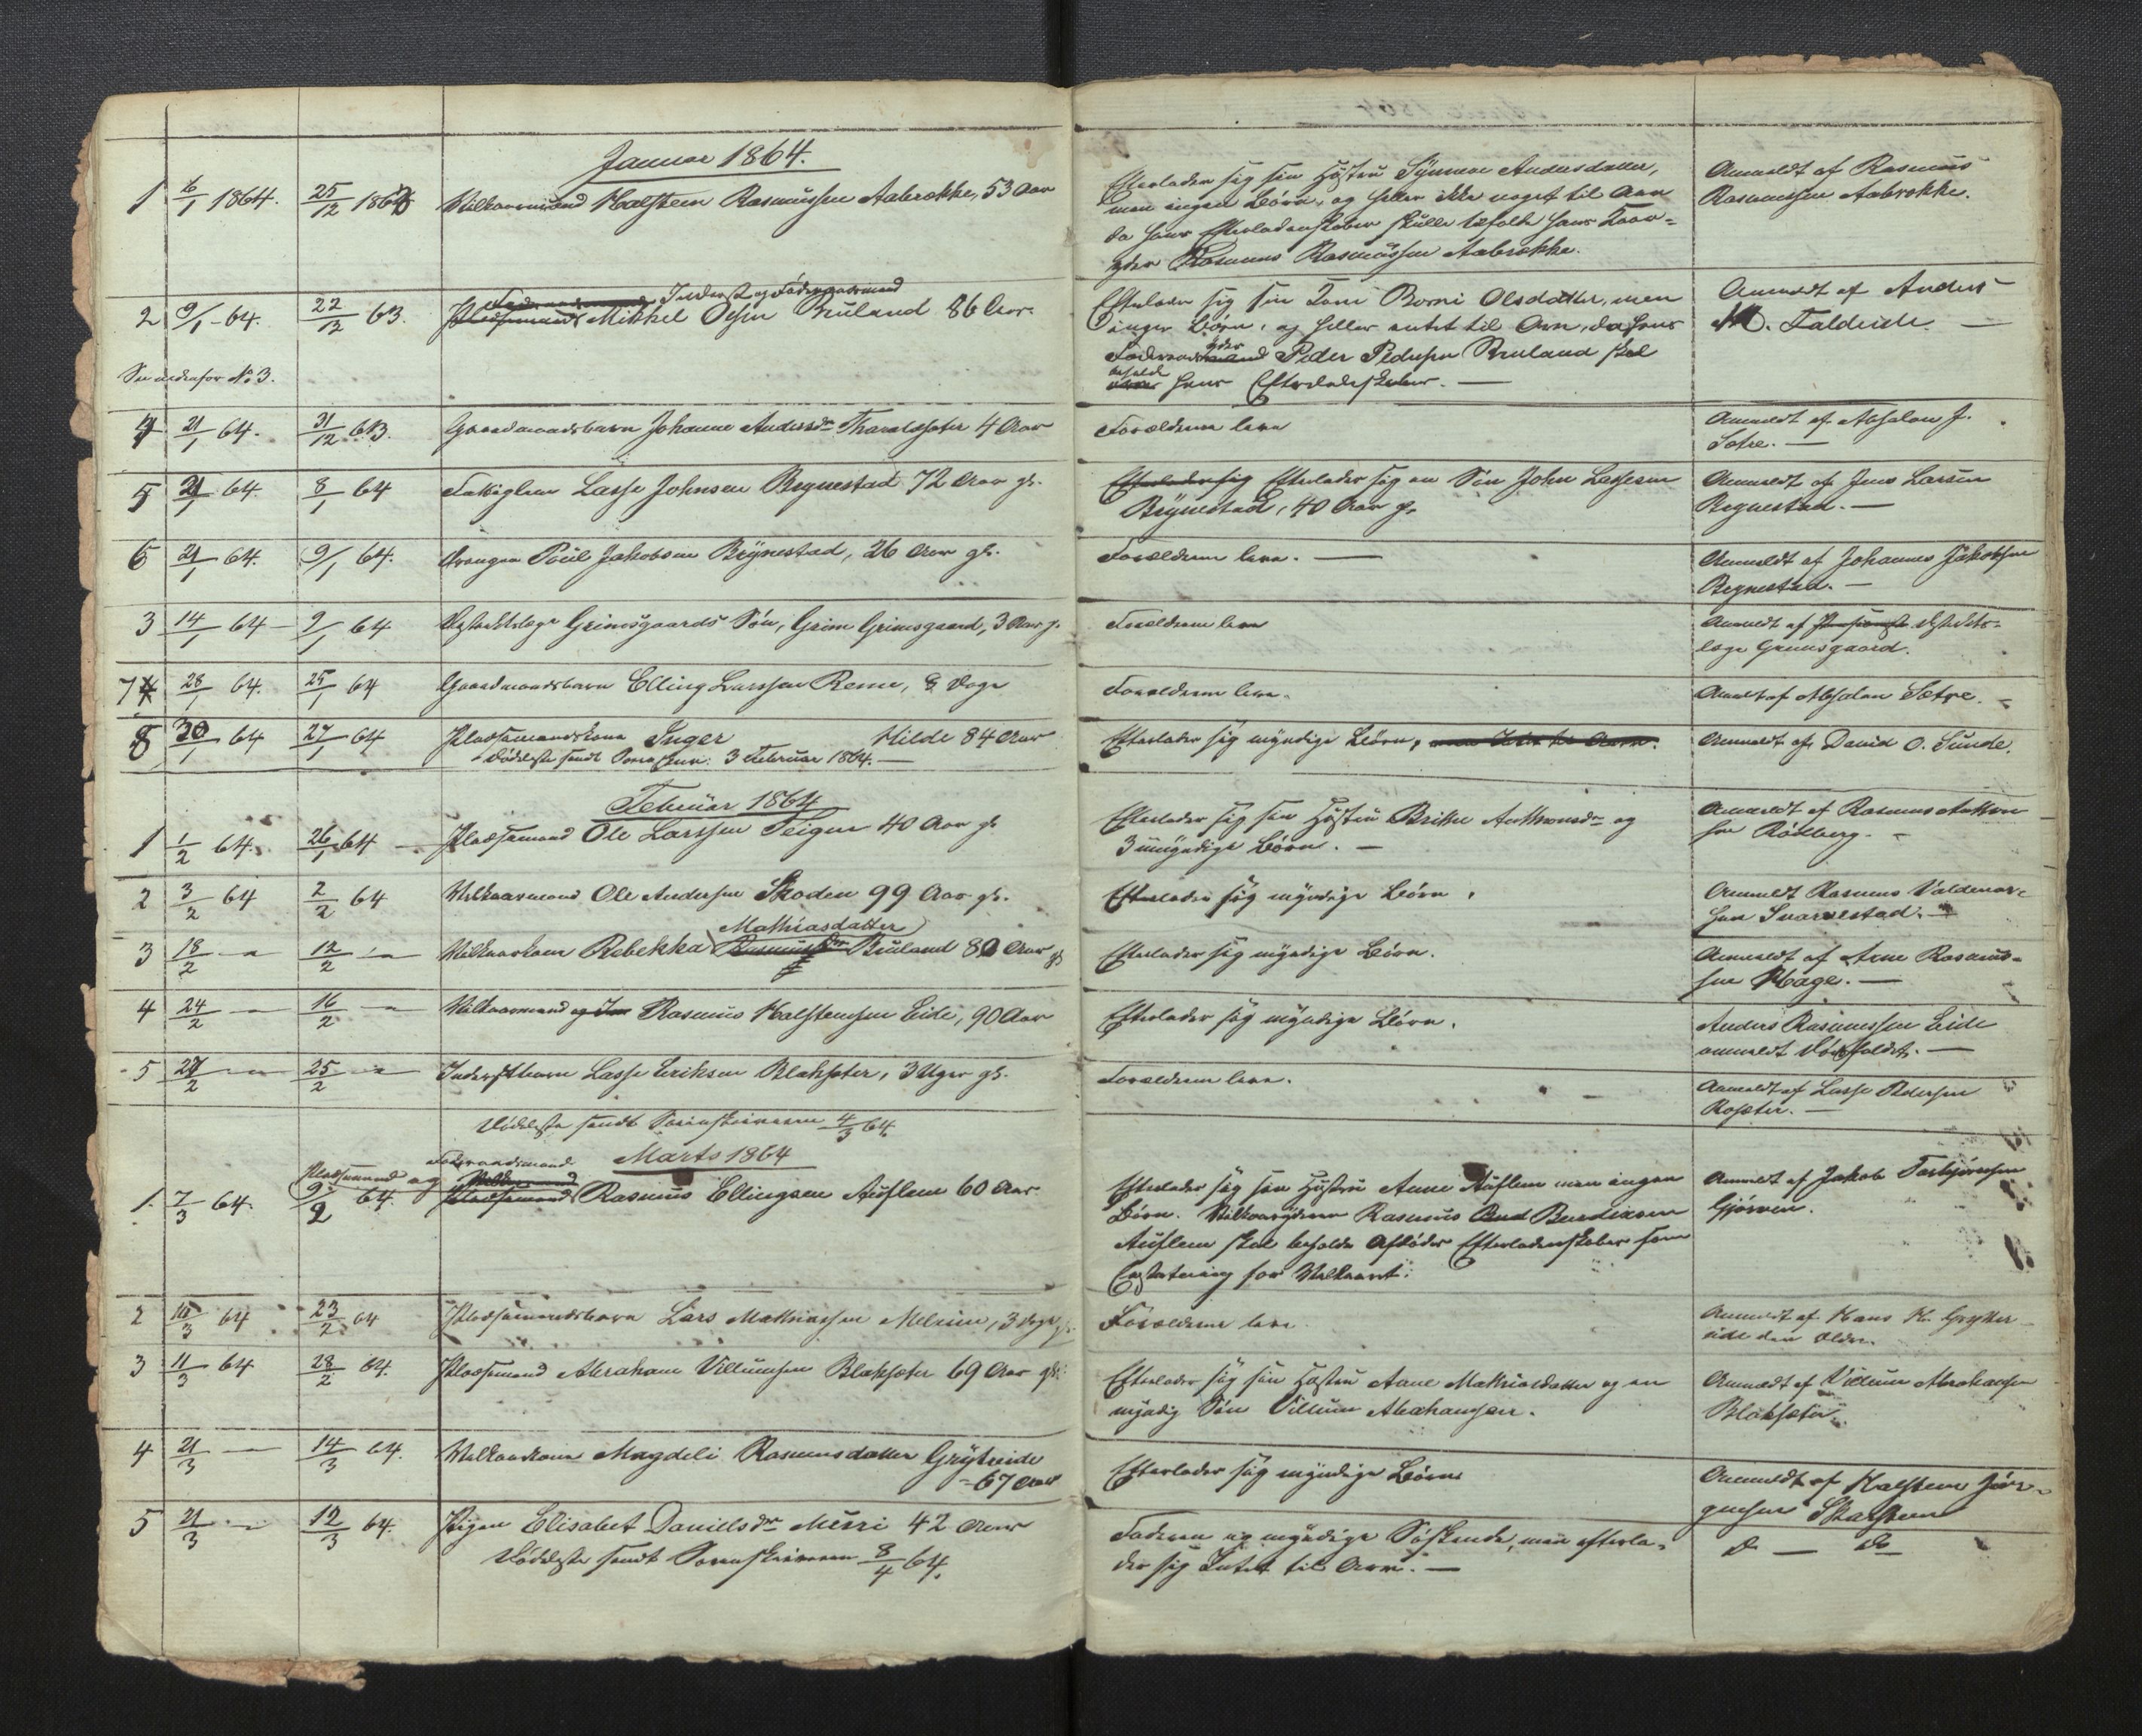 Januar 1864.
1 6/1 1864. 25/12 1863 Vilkaarmand Halsteen Rasmussen Aabrække, 53 Aar
Efterlader sig sin Hustru Synneve Andersdatter,
men ingen Børn, og heller ikke noget til Arv
da hans Efterladenskaber skulle tilfalde hans Kaar-
yder Rasmus Rasmussen Aabrække.
Anmeldt af Rasmus
Rasmussen Aabrække.
Inderst og Føderaadsmand
2 9/1 - 64. 22/12 63. Pladsemand Mikkel Olsen Bruland 86 Aar.
Efterlader sig sin Kone Borni Olsdatter, men
ingen Børn, og heller intet til Arv, da hans
Føderaadsyder Peder Pedersen Bruland skal
beholde hans Efterladenskaber. —
Anmeldt af Anders
M. Faldeide. —
See nedenfor No 3.
4 21/1 64. 31/12 63. Gaardmandsbarn Johanne Andersdr Tharaldsæter 4 Aar
Forældrene leve
Anmeldt af Absalon J.
Sætre. —
5 21/1 64. 8/1 64 Fattiglem Lasse Johnsen Brynestad 72 Aar gl.
Efterlader sig Efterlader sig en Søn John Lassesen
Brynestad, 40 Aar gl.
Anmeldt af Jens Larsen
Brynestad. —
6 21/1 64. 9/1 64. Drengen Poul Jakobsen Brynestad, 26 Aar gl.
Forældrene leve. —
Anmeldt af Johannes Jakobsen
Brynestad. —
3 14/1 64 — 9/1 64 Distriktslæge Grimsgaards Søn, Grim Grimsgaard, 3 Aar gl.
Forældrene leve
Anmeldt af Distrikts-
læge Grimsgaard.
7 28/1 64. 25/1 64 Gaardmandsbarn Elling Larssen Reme, 8 Dage
Forældrene leve.
Anmeldt af Absalon Sætre. —
8 30/1 64 27/1 64 Pladsemandskone Inger Hilde 84 Aar
Dødsliste sendt Sorenskriv. 3 Februar 1864. —
Efterlader sig myndige Børn,
Anmeldt af David O. Sunde.
Februar 1864
1 1/2 64. 26/1 64 — Pladsemand Ole Larssen Teigen 40 Aar gl.
Efterlader sig sin Hustru Brithe Anthonsdr og
3 umyndige Børn. —
Anmeldt af Rasmus Anthon
sen Rødberg. —
2 3/2 64 2/2 64 Vilkaarmand Ole Andersen Skoden 99 Aar gl.
Efterlader sig myndige Børn.
Anmeldt Rasmus Valdemar-
sen Svarvestad. —
Mathiasdatter
3 18/2 — 12/2 — Vilkaarkone Rebekka Rasmusdr Bruland 80 Aar gl
Efterlader sig myndige Børn.
Anmeldt af Arne Rasmus-
sen Hage. —
4 24/2 — 16/2 — Vilkaarmand og Rasmus Halstensen Eide, 90 Aar
Efterlader sig myndige Børn.
Anders Rasmussen Eide
anmeldt Dødsfaldet. —
5 27/2 — 25/2 — Inderstbarn Lasse Eriksen Blaksæter, 3 Uger gl.
Forældrene leve.
Anmeldt af Lasse Pedersen
Rosæter. —
Dødsliste sendt Sorenskriveren 4/3 64.
Marts 1864
Pladsemand og Føderaadsmand
1. 7/3 64. 9/2 64. Pladsemand Rasmus Ellingsen Auflem 60 Aar
Efterlader sig sin Hustru Anne Auflem men ingen
Børn. Vilkaaryderen Rasmus Bendixen
Auflem skal beholde Afdødes Efterladenskaber som
Erstatning for Vilkaaret.
Anmeldt af Jakob Torbjørnsen
Gjørven.
2 10/3 64 23/2 64 Pladsemandsbarn Lars Mathiassen Melheim, 3 Dage gl.
Forældrene leve
Anmeldt af Hans H. Grytter
eide den ældre.
3 11/3 64 28/2 64. Pladsemand Abraham Villumsen Blaksæter 69 Aar gl.
Efterlader sig sin Hustru Anne Mathiasdatter og en
myndig Søn Villum Abrahamsen.
Anmeldt af Villum Abrahamsen
Blaksæter.
4 21/3 — 14/3 64. Vilkaarkone Magdeli Rasmusdatter Grytteide
- 67 Aar
Efterlader sig myndige Børn
Anmeldt af Halsten Jør-
gensen Skarsten
5 21/3 — 12/3 64. Pigen Elisabet Danielsdr Muri 42 Aar
Dødsliste sendt Sorenskriveren 8/4 64.
Faderen og myndige Søskende, men efterla-
der sig Intet til Arv. —
Do — Do